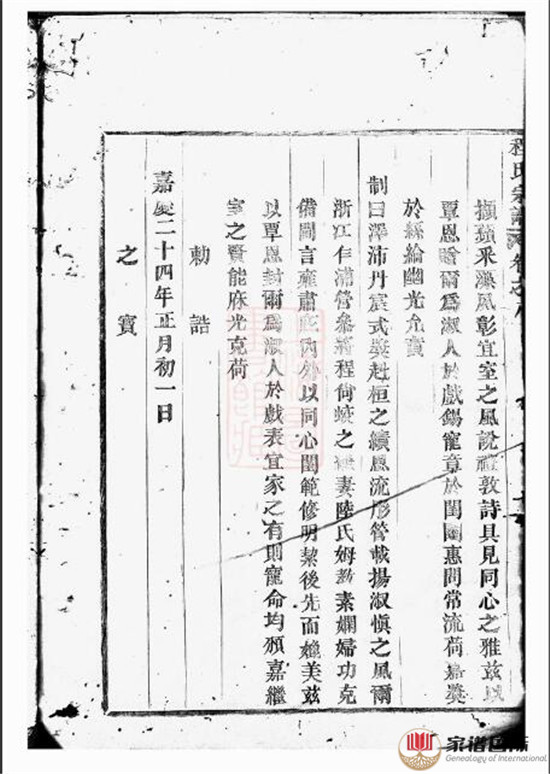 程氏宗譜 卷之八
擷蘋采藻夙彰宜室之風說禮敦詩具見同心之雅茲以
覃恩贈爾為淑人於戲錫寵章於閨閫惠問常流荷嘉獎
於絲綸幽光允賁
制曰澤沛丹宸式獎赳桓之績恩流彤管載揚淑愼之風爾
浙江乍浦營叅將程尙蛟之繼妻陸氏姆敎素嫻婦功克
備閫言雍肅庇內外以同心閨範修明絜後先而媲美茲
以覃恩封爾為淑人於戲表宜家之有則寵命均頒嘉繼
室之賢能庥光克荷
勅誥
嘉慶二十四年正月初一日
之寶
家谱
Genealogy of International